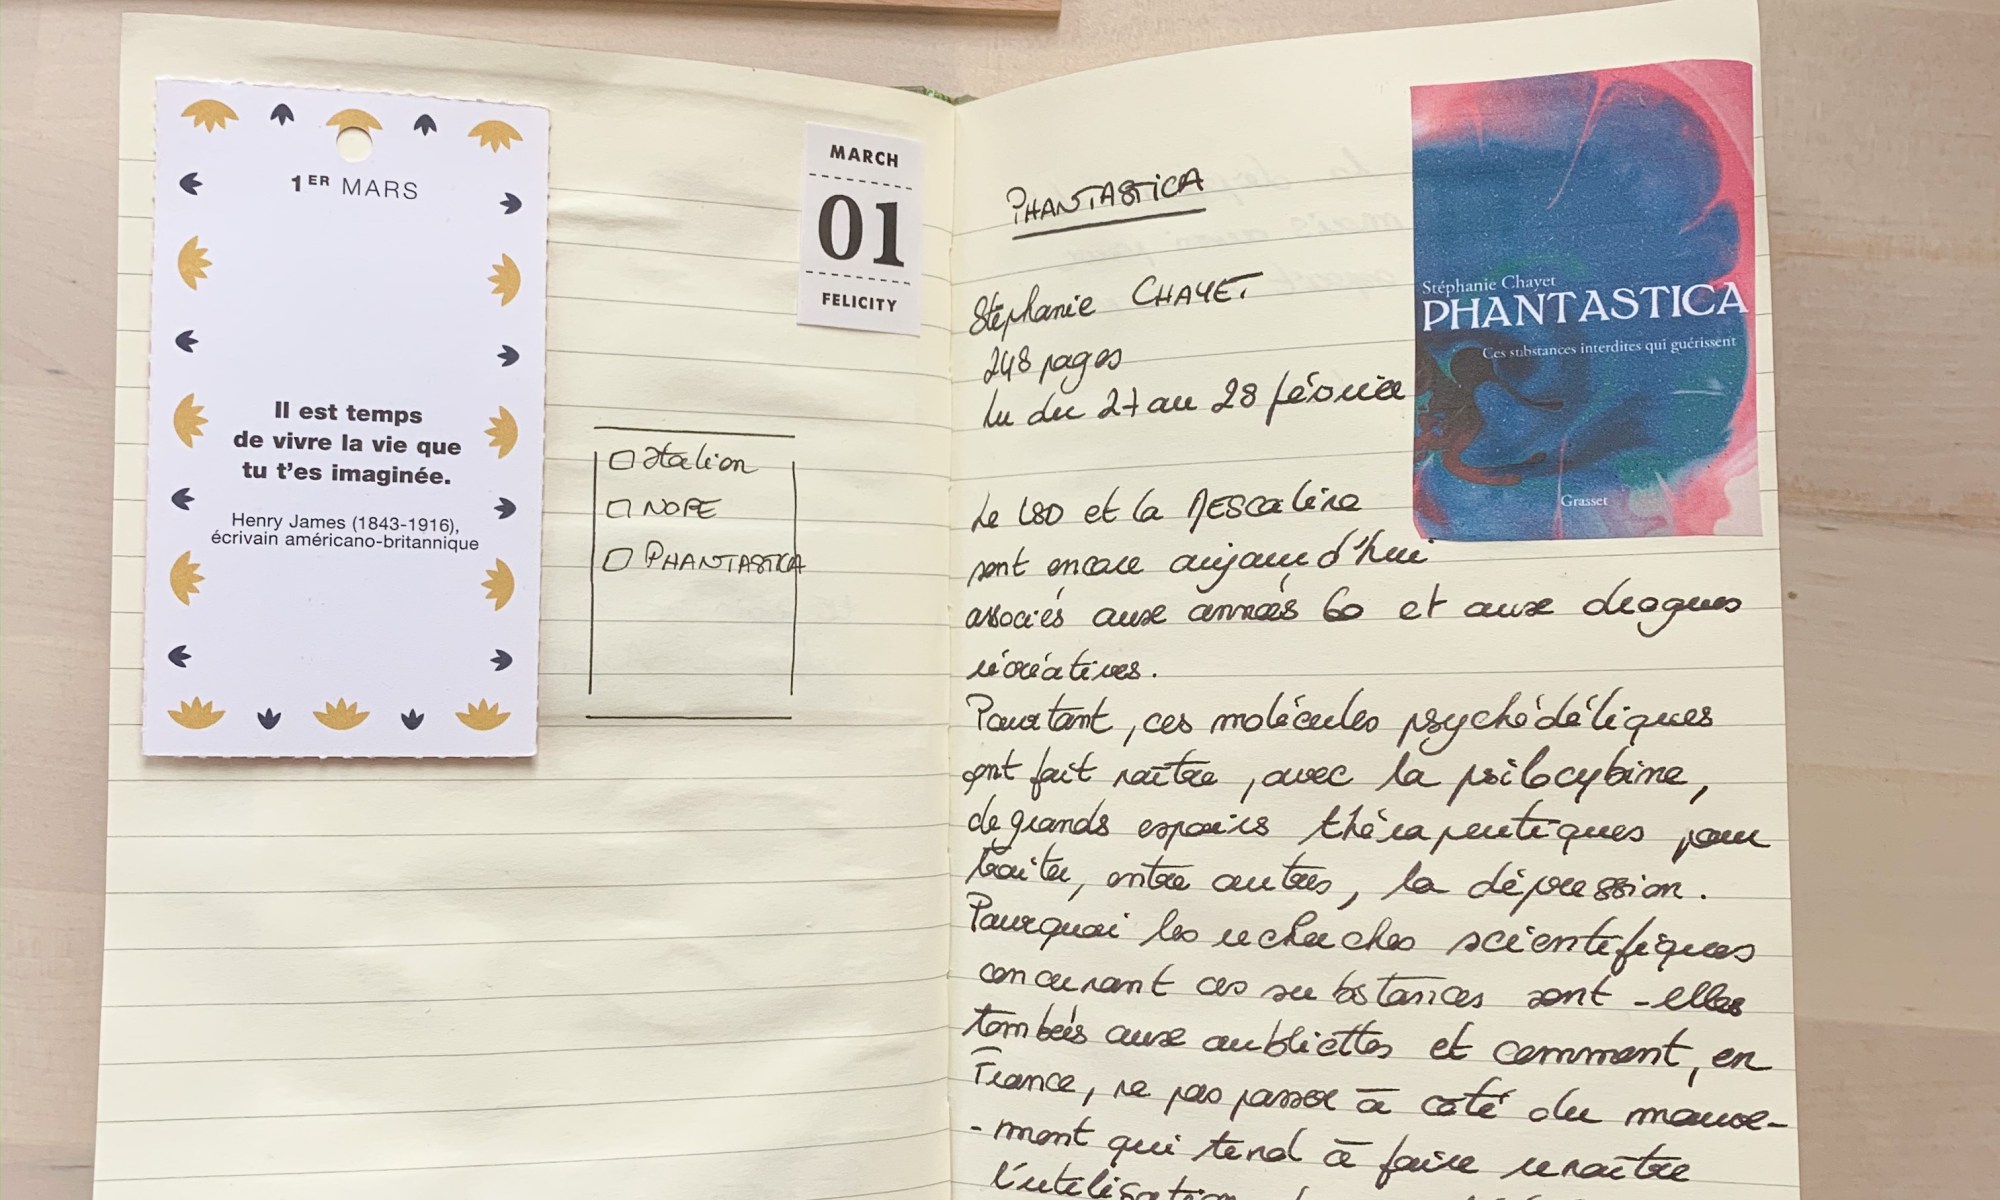 1ER MARS
Il est temps
de vivre la vie que
tu t'es imaginée.
Henry James (1843-1916),
écrivain américano-britannique
MARCH
01
FELICITY
Italion
NOPE
PHANTASTICA
PHANTASTICA
Stéphanie CHAYET
248 pages
lu du 27 au 28 février
Stéphanie Chayet
PHANTASTICA
Ces substances interdites qui guérissent
Grasset
Le LSD et la MESCaline
sont encore aujourd'hui
associés aux années 60 et aux drogues
récréatives.
Pourtant, ces molécules psychédéliques
ont fait naître, avec la psilocybine,
de grands espoirs thérapeutiques pour
traiter, entre autres, la dépression.
Pourquoi les recherches scientifiques
concernant ces substances sont-elles
tombées aux oubliettes et comment, en
France, ne pas passer à côté du mouve-
-ment qui tend à faire renaître
l'utilisation